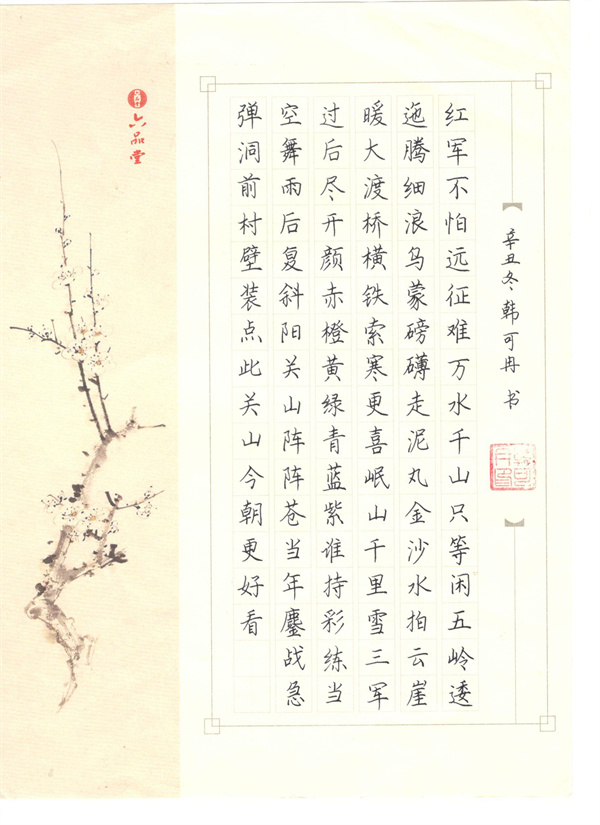 红军不怕远征难万水千山只等闲五岭逶
迤腾细浪乌蒙磅礴走泥丸金沙水拍云崖
暖大渡桥横铁索寒更喜岷山千里雪三军
过后尽开颜赤橙黄绿青蓝紫谁持彩练当
空舞雨后复斜阳关山阵阵苍当年鏖战急
弹洞前村壁装点此关山今朝更好看
辛丑冬韩可冉书
六品堂